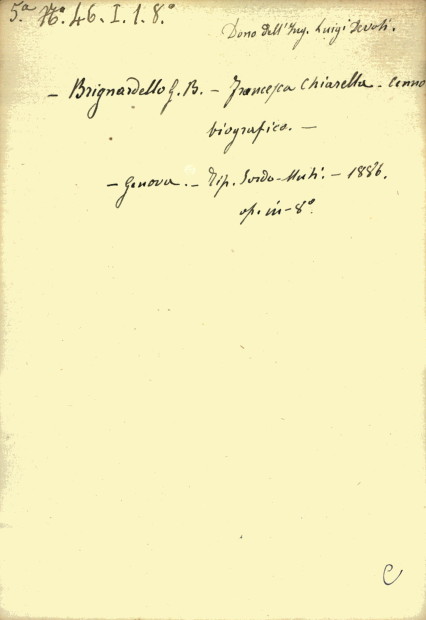 5.ª Nº. 46. I. 1. 8.º
Dono dell'Ing. Luigi
– Brignardello G. B. – Francesca Chiarella – Cenno
biografico. –
– Genova. – Tip. Sordo-Muti. – 1886.
op. in-8º.
C